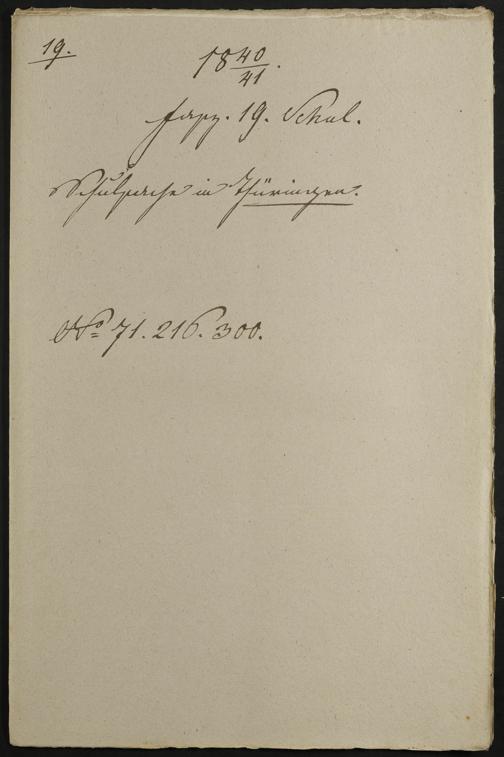 19.
18 40/41.
fasz. 19. Schul.
Schulsache in Thüringen.
No 71. 216. 300.